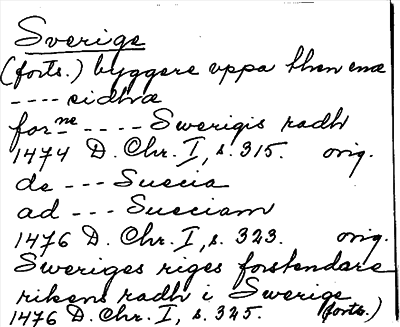 Sverige
(forts.) byggere uppa then ena
---- sidhæ
forne ---- Swerigis radh
1474 D. Chr. I, s. 315. orig.
de --- Suecia
ad --- Sueciam
1476 D. Chr. I, s. 323. orig.
Sweriges riges forstendare
rikens radh i Swerige
1476 D. Chr. I, s. 325. (forts.)